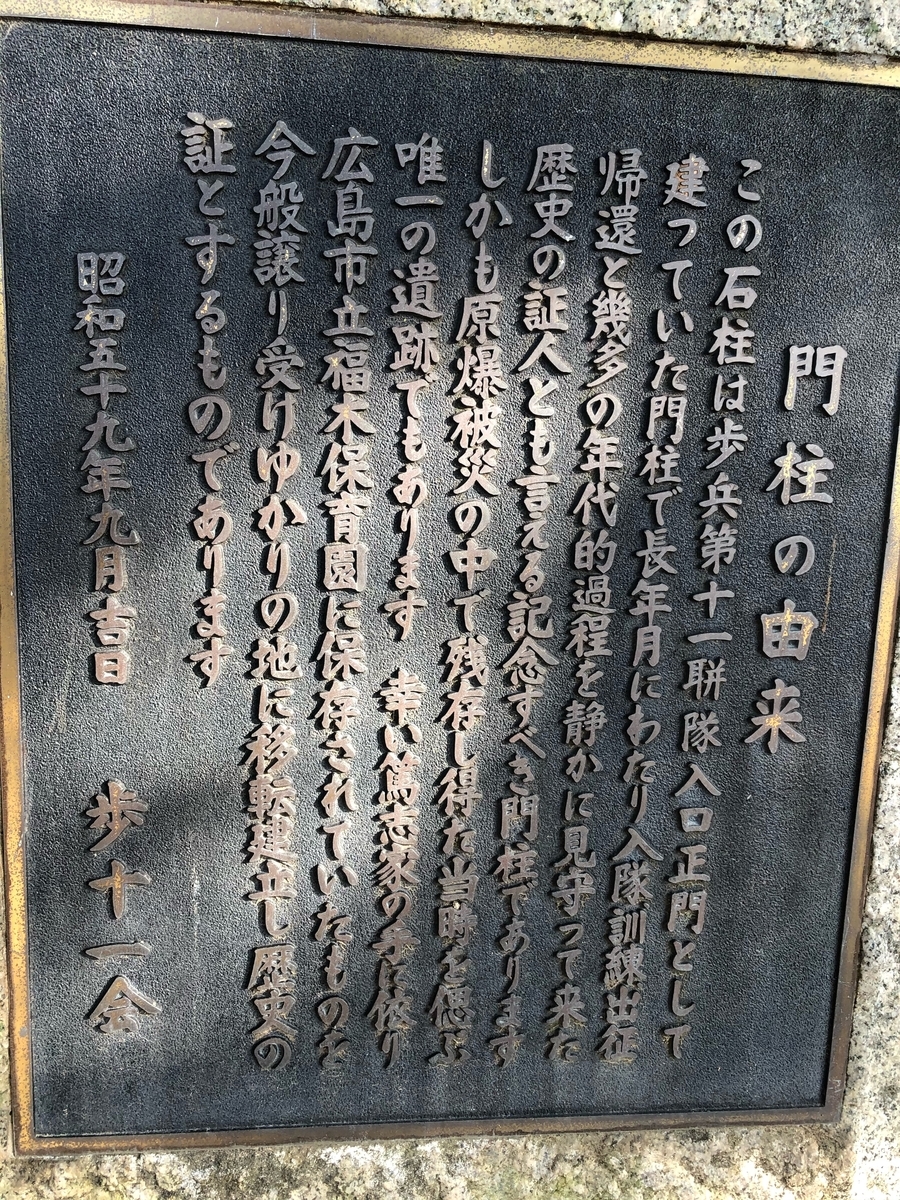 門柱の由来
この石柱は歩兵第十一聯隊入口正門として
建っていた門柱で長年月にわたり入隊訓練出征
帰還と幾多の年代的過程を静かに見守って来た
歴史の証人とも言える記念すべき門柱であります
しかも原爆被災の中で残存し得た当時を偲ぶ
唯一の遺跡でもあります 幸い篤志家の手に依り
広島市立福木保育園に保存されていたものを
今般譲り受けゆかりの地に移転建立し歴史の
証とするものであります
昭和五十九年九月吉日 歩十一会